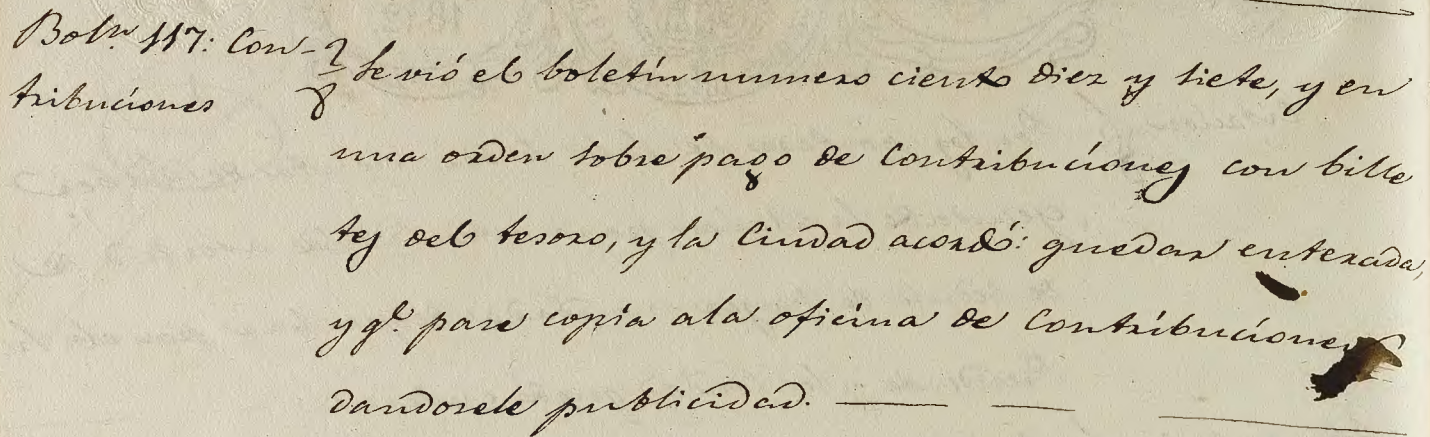 Boln. 117: Con-
tribuciones
Se vió el boletín numero ciento diez y siete, y en
una orden sobre pago de Contribuciones con bille
tes del tesoro, y la Ciudad acordó: quedar enterada,
y qe. pase copia ala oficina de Contribuciones
dandosele publicidad.